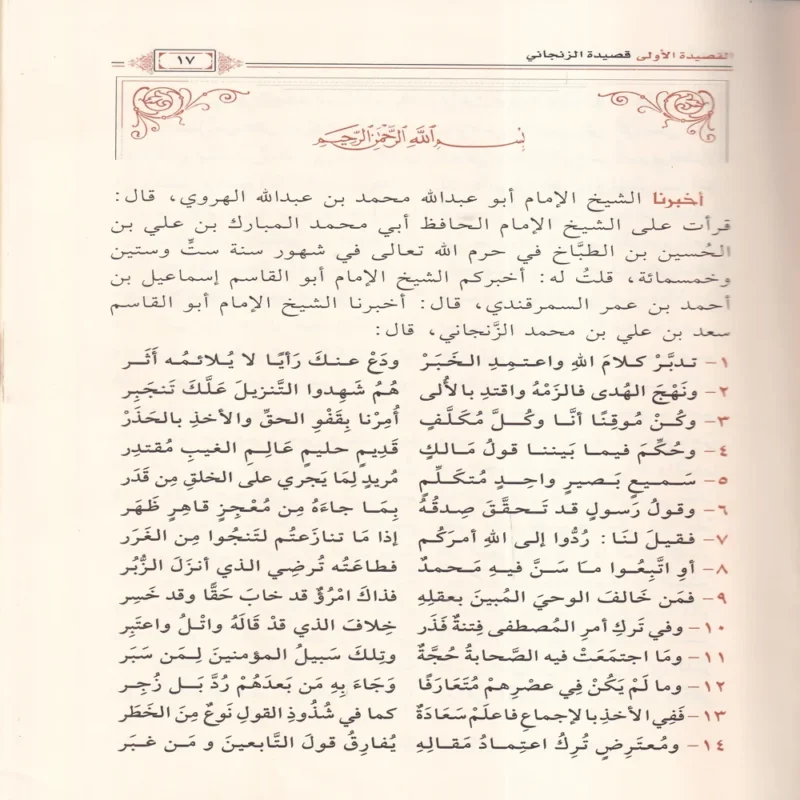 القصيدة الأولى قصيدة الزنجاني
١٧
بسم الله الرحمن الرحيم
أخبرنا الشيخ الإمام أبو عبدالله محمد بن عبدالله الهروي، قال:
قرأت على الشيخ الإمام الحافظ أبي محمد المبارك بن علي بن
الحُسين بن الطبَّاخ في حرم الله تعالى في شهور سنة ستٍّ وستين
وخمسمائة، قلتُ له: أخبركم الشيخ الإمام أبو القاسم إسماعيل بن
أحمد بن عمر السمرقندي، قال: أخبرنا الشيخ الإمام أبو القاسم
سعد بن علي بن محمد الزَّنجاني، قال:
١- تدبَّرْ كلامَ اللهِ واعتمِدِ الخَبَرْ ودَعْ عنكَ رَأيًا لا يُلائمُه أَثَر
٢- ونَهْجَ الهُدى فالزَمْهُ واقتدِ بالأُلى هُمُ شَهِدوا التَّنزيلَ عَلَّكَ تَنجَبِر
٣- وكُنْ مُوقِنًا أنَّا وكُلَّ مُكَلَّفٍ أُمِرْنا بِقَفْوِ الحقِّ والأخذِ بالحَذَرْ
٤- وحُكِّمَ فيما بَيننا قولُ مَالكٍ قَديمٍ حليمٍ عَالِمِ الغيبِ مُقتدِر
٥- سَميعٍ بَصيرٍ واحِدٍ مُتكَلِّمٍ مُريدٍ لِمَا يَجري على الخلقِ مِن قَدَر
٦- وقولُ رَسولٍ قد تَحقَّقَ صِدقُهُ بِمَا جاءَهُ مِن مُعْجِزٍ قاهِرٍ ظَهَر
٧- فقيلَ لنَا: رُدُّوا إلى اللهِ أمرَكُم إذا مَا تنازَعتُم لتَنجُوا مِن الغَرَر
٨- أوِ اتَّبِعُوا مَا سَنَّ فيهِ مَحمدٌ فطاعَتُه تُرضِي الذي أنزَلَ الزُّبُر
٩- فمَن خَالفَ الوحيَ المُبينَ بعقلِهِ فذاكَ امْرُؤٌ قد خابَ حَقًّا وقد خَسِر
١٠- وفي تَركِ أمرِ المُصطفى فِتنةٌ فَذَر خِلافَ الذي قدْ قَالَهُ واتْلُ واعتَبِر
١١- ومَا اجتمَعَتْ فيه الصَّحابةُ حُجَّةٌ وتِلكَ سَبيلُ المؤمنينَ لِمَن سَبَر
١٢- وما لَمْ يَكُنْ فِي عصْرِهمْ مُتَعَارَفًا وَجَاءَ بِهِ مَن بَعدَهُمْ رُدَّ بَل زُجِر
١٣- فَفِي الأخذِ بالإجماعِ فاعلَمْ سَعَادَةٌ كما في شُذُوذِ القولِ نَوعٌ مِنَ الخَطَر
١٤- ومُعتَرِضٍ تُركُ اعتِمادُ مَقالِهِ يُفارِقُ قولَ التَّابعينَ و مَن غبَر